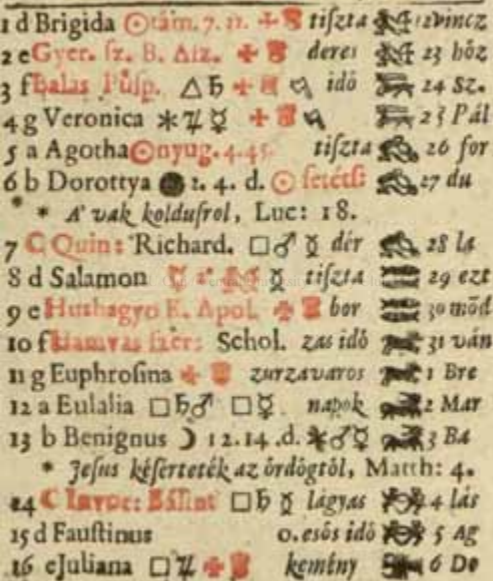 1 d Brigida ☉tám. 7. 11. tiſzta 22 vincz
2 e Gyer. ſz. B. Aſz. deres 23 bőz
3 f Balas Püſp. △ ♄ idő 24 Sz.
4 g Veronica ⚹ ♃ ☿ 25 Pál
5 a Agotha ☉nyug. 4.45. tiſzta 26 for
6 b Dorottya ● 1. 4. d. ☉ ſetétſ 27 du
* * A' vak kolduſrol, Luc: 18.
7 C Quin: Richard. □ ♂ ☿ dér 28 la
8 d Salamon ☿ tiſzta 29 ezt
9 e Hushagyo K. Apol. bor 30 mōd
10 f Hamvas ſzer: Schol. zas idő 31 ván
11 g Euphroſina zurzavaros 1 Bre
12 a Eulalia □ ♄ ♂ □ ☿ napok 2 Mar
13 b Benignus ☽ 12. 14 .d. ⚹ ♂ ☿ 3 Ba
* Jeſus kéſerteték az ördögtől, Matth: 4.
14 C Invoc: Bálint □ ♄ ☿ lágyas 4 lás
15 d Fauſtinus o. esős idő 5 Ag
16 e Juliana □ ♃ kemény 6 Do